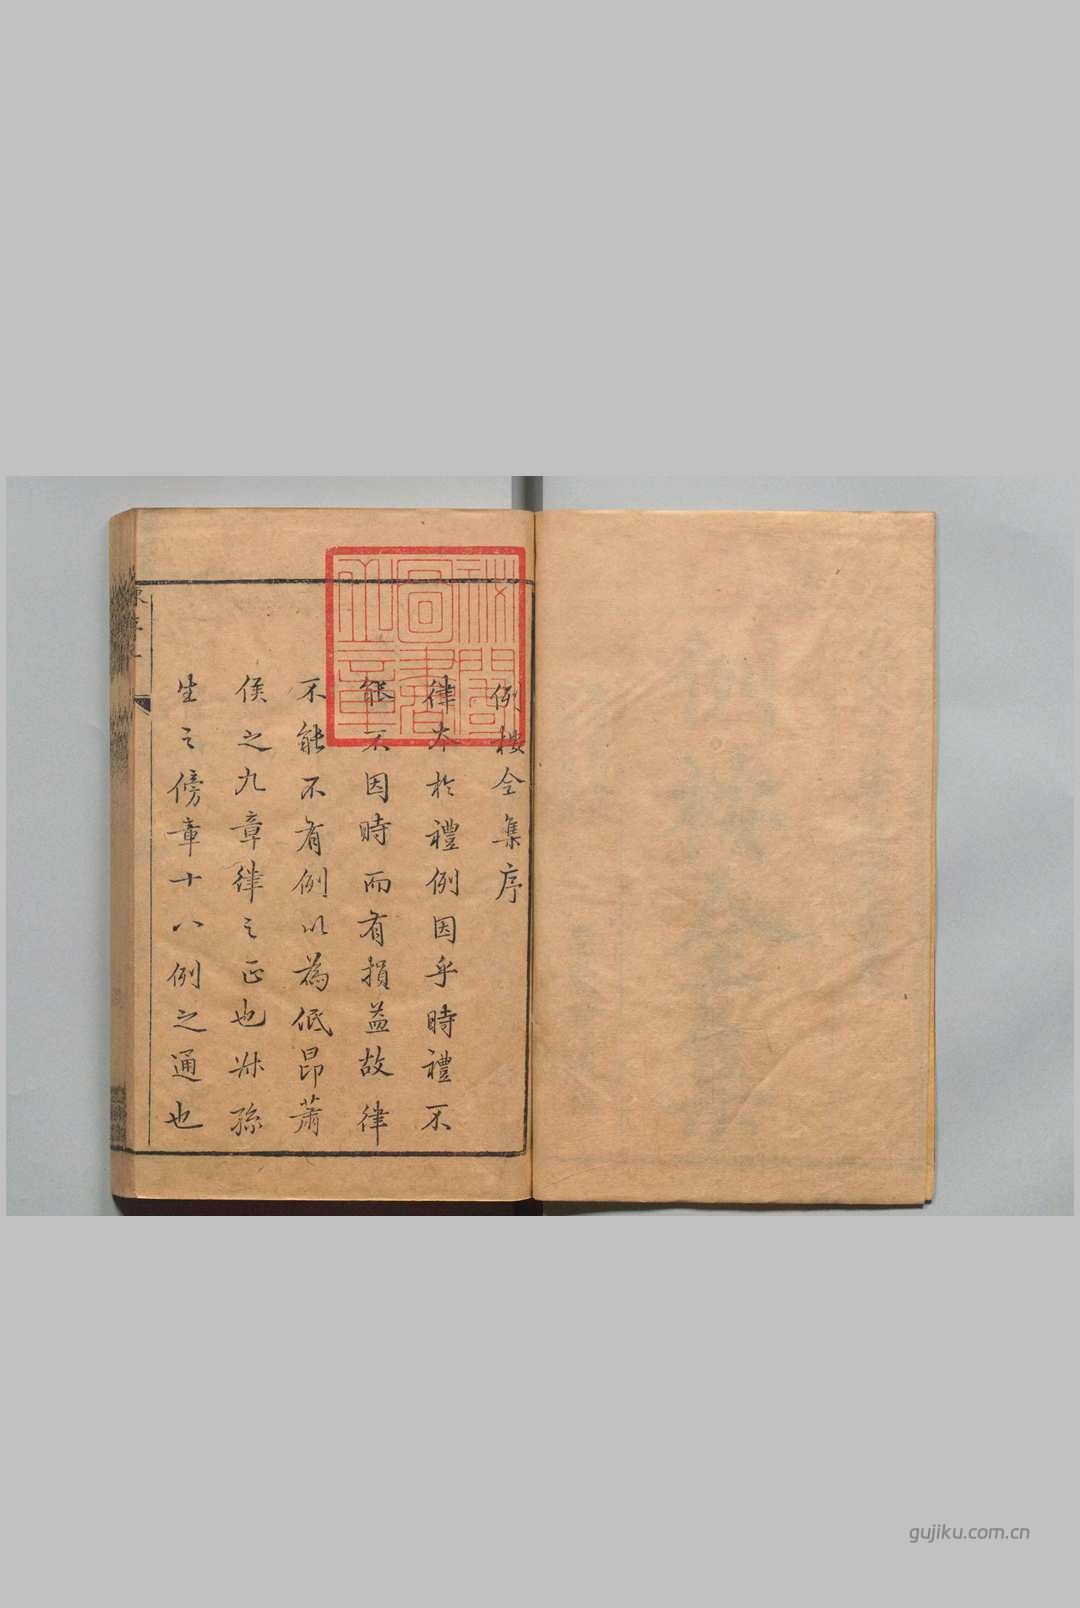 例樓全集序
律本於禮例因乎時禮不
能不因時而有損益故律
不能不有例以為低昂蕭
侯之九章律之正也叔孫
生之傍章十八例之通也
秘閣
圖書
之章
gujiku.com.cn